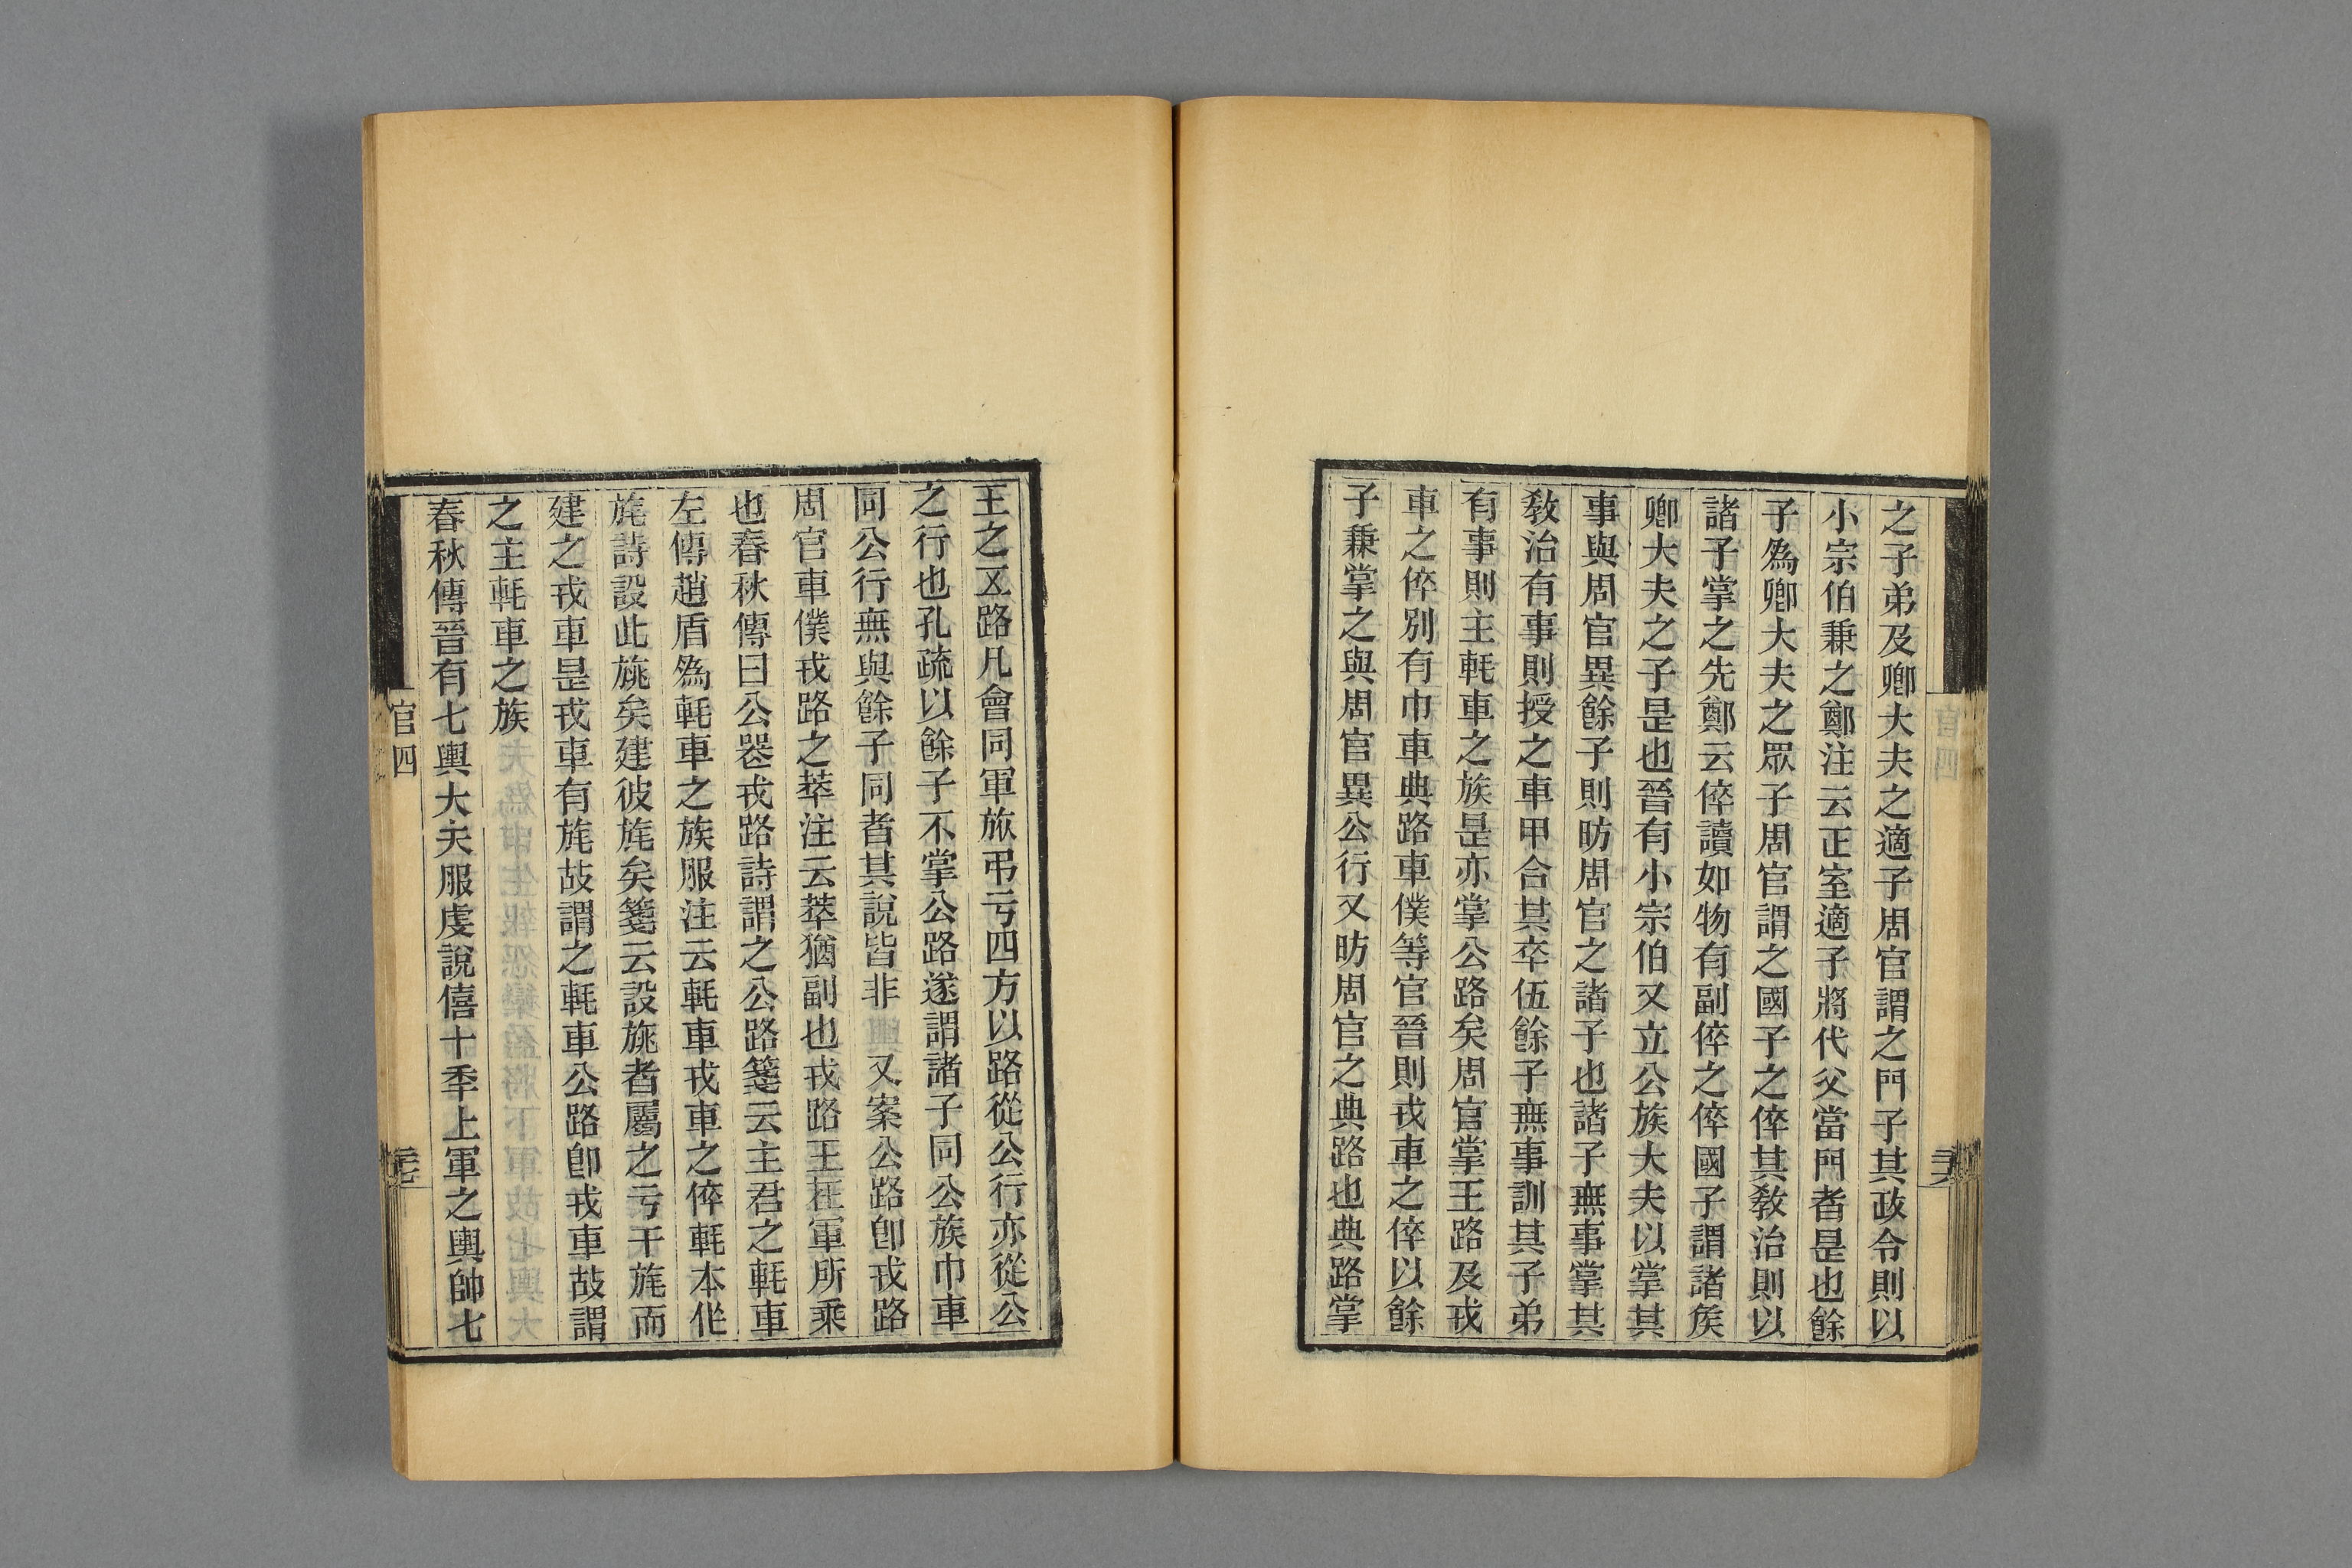 之子弟及卿大夫之適子周官謂之門子其政令則以
小宗伯兼之鄭注云正室適子將代父當門者是也餘
子爲卿大夫之眾子周官謂之國子之倅其敎治則以
諸子掌之先鄭云倅讀如物有副倅之倅國子謂諸矦
卿大夫之子是也晉有小宗伯又立公族大夫以掌其
事與周官異餘子則昉周官之諸子也諸子無事掌其
敎治有事則授之車甲合其卒伍餘子無事訓其子弟
有事則主軞車之族是亦掌公路矣周官掌王路及戎
車之倅別有巾車典路車僕等官晉則戎車之倅以餘
子兼掌之與周官異公行又昉周官之典路也典路掌
官四
王之五路凡會同軍旅弔亏四方以路從公行亦從公
之行也孔疏以餘子不掌公路遂謂諸子同公族巾車
同公行無與餘子同者其說皆非 又案公路卽戎路
周官車僕戎路之萃注云萃猶副也戎路王在軍所乘
也春秋傳曰公喪戎路詩謂之公路箋云主君之軞車
左傳趙盾爲軞車之族服注云軞車戎車之倅軞本作
旄詩設此旐矣建彼旄矣箋云設旐者屬之亏干旄而
建之戎車是戎車有旄故謂之軞車公路卽戎車故謂
之主軞車之族
春秋傳晉有七輿大夫服虔說僖十秊上軍之輿帥七
官四